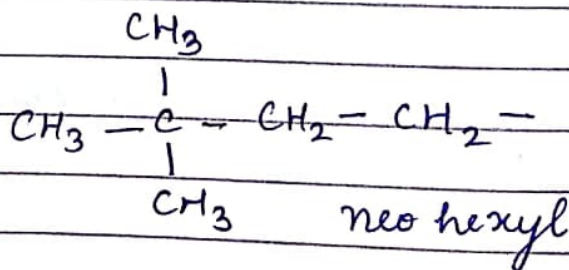 CH3
|
CH3 – C – CH2 – CH2 –
|
CH3 neo hexyl